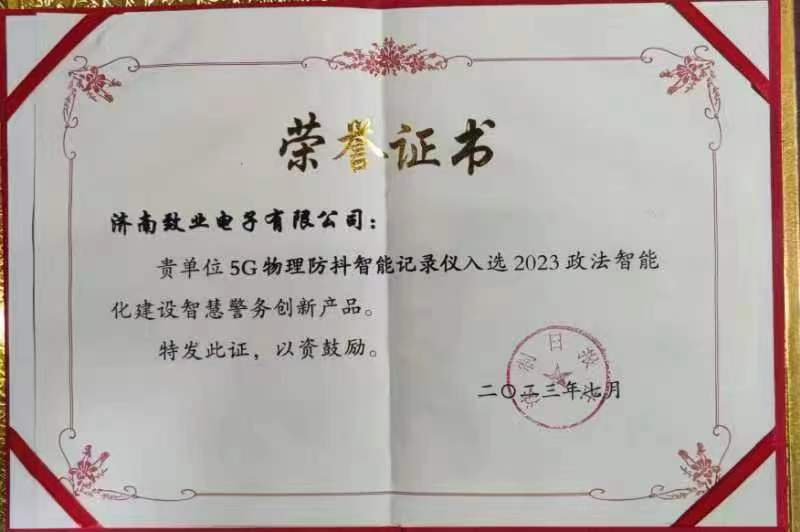 荣誉证书
济南致业电子有限公司：
贵单位 5G 物理防抖智能记录仪入选 2023 政法智能
化建设智慧警务创新产品。
特发此证，以资鼓励。
法制日报社
二〇二三年七月